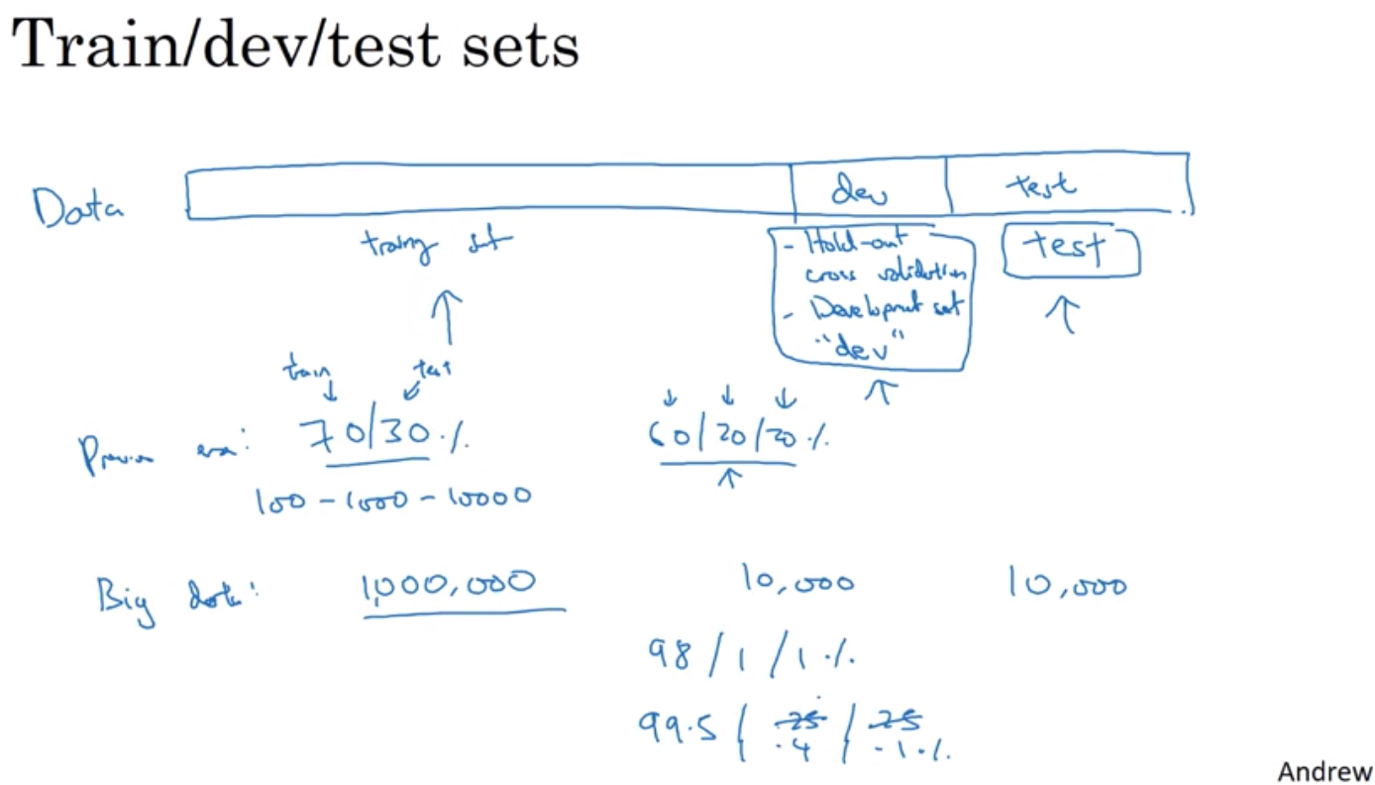 Train/dev/test sets
Data
dev
test
training set
- Hold-out
cross validation
- Development set
"dev"
test
train
test
Previous era:
70/30.%
60/20/20.%
100 - 1000 - 10000
Big data:
1,000,000
10,000
10,000
98/1/1.%
99.5/ 25 / 25
.4 .1.%
Andrew